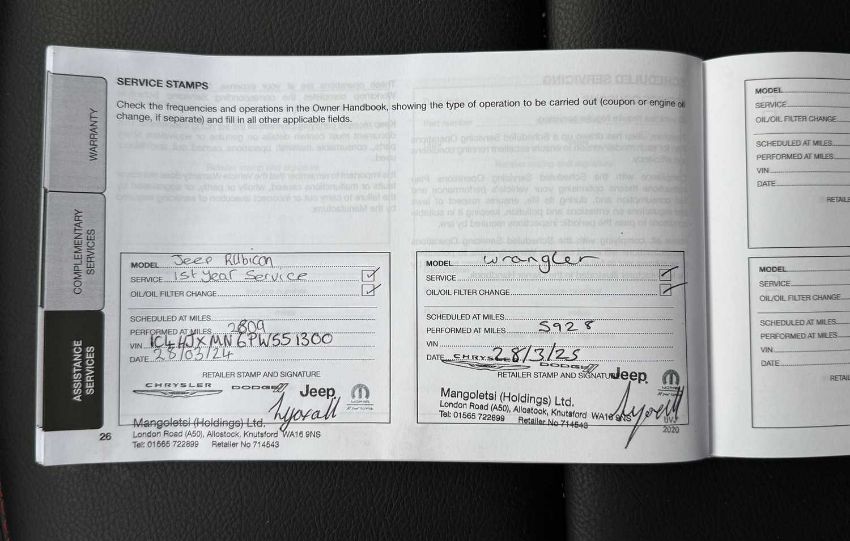 SERVICE STAMPS
Check the frequencies and operations in the Owner Handbook, showing the type of operation to be carried out (coupon or engine oil
change, if separate) and fill in all other applicable fields.
WARRANTY
COMPLEMENTARY
SERVICES
ASSISTANCE
SERVICES
MODEL Jeep Rubicon
SERVICE 1st Year Service
OIL/OIL FILTER CHANGE
SCHEDULED AT MILES
PERFORMED AT MILES 2809
VIN 1C4HJXMN6PW551300
DATE 28/03/24
RETAILER STAMP AND SIGNATURE
CHRYSLER DODGE Jeep
Mangoletsi (Holdings) Ltd.
London Road (A50), Allostock, Knutsford WA16 9NS
Tel: 01565 722899 Retailer No 714543
26
MODEL Wrangler
SERVICE
OIL/OIL FILTER CHANGE
SCHEDULED AT MILES
PERFORMED AT MILES 5928
VIN
DATE 28/3/25
CHRYSLER DODGE Jeep
RETAILER STAMP AND SIGNATU
Mangoletsi (Holdings) Ltd.
London Road (A50), Allostock, Knutsford WA16 9NS
Tel: 01565 722899 Retailer No 714543
2020
MODEL
SERVICE
OIL/OIL FILTER CHANGE
SCHEDULED AT MILES
PERFORMED AT MILES
VIN
DATE
RETAILE
MODEL
SERVICE
OIL/OIL FILTER CHANGE
SCHEDULED AT MILES
PERFORMED AT MILES
VIN
DATE
RETAIL